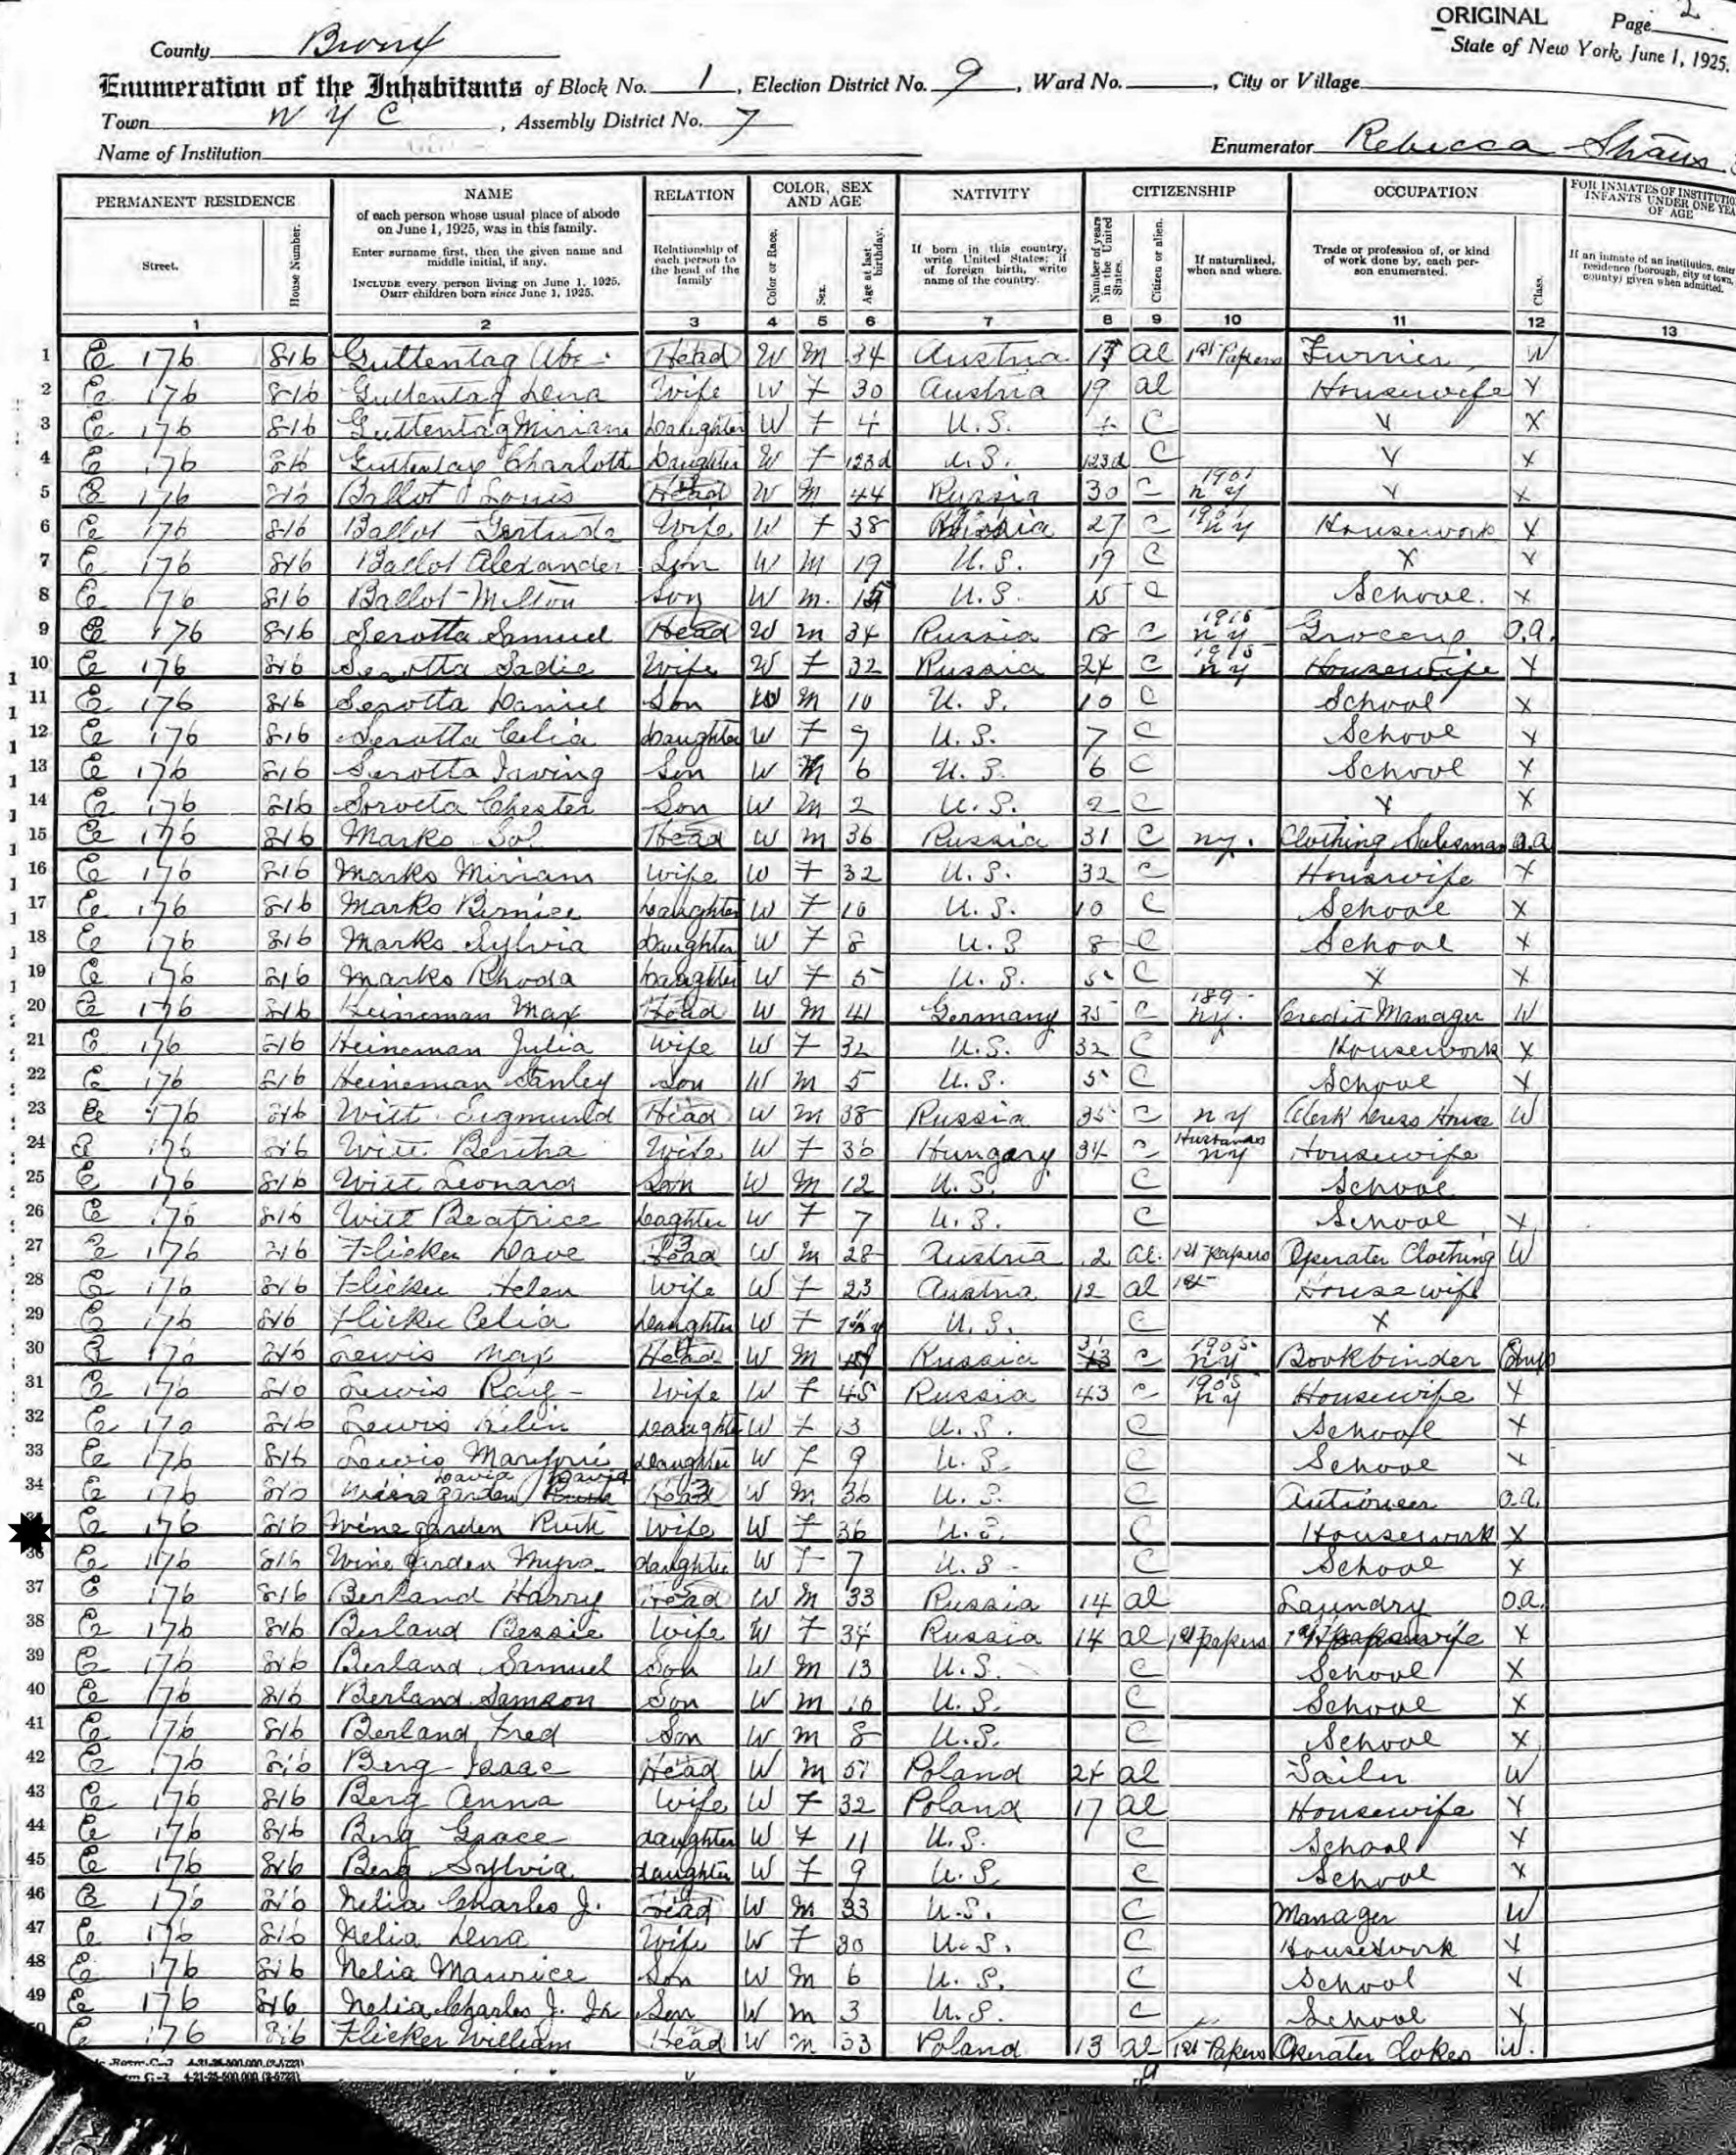 ORIGINAL Page 2
State of New York, June 1, 1925.
County Bronx
Enumeration of the Inhabitants of Block No. 1, Election District No. 9, Ward No. , City or Village
Town N Y C, Assembly District No. 7
Name of Institution
Enumerator Rebecca
PERMANENT RESIDENCE NAME RELATION COLOR, SEX AND AGE NATIVITY CITIZENSHIP OCCUPATION FOR INMATES OF INSTITUTIO INFANTS UNDER ONE YEA OF AGE
Street. House Number. of each person whose usual place of abode on June 1, 1925, was in this family. Enter surname first, then the given name and middle initial, if any. INCLUDE every person living on June 1, 1925. OMIT children born since June 1, 1925. Relationship of each person to the head of the family Color or Race. Sex. Age at last birthday. If born in this country, write United States; if of foreign birth, write name of the country. Number of years in the United States. Citizen or alien. If naturalized, when and where. Trade or profession of, or kind of work done by, each person enumerated. Class. If an inmate of an institution, enter residence (borough, city or town, county) given when admitted.
1 2 3 4 5 6 7 8 9 10 11 12 13
1 E 176 816 Guttentag Abe Head W M 34 Austria al 1st Papers Furrier W
2 E 176 816 Guttentag Lena Wife W F 30 Austria 19 al Housewife X
3 E 176 816 Guttentag Miriam Daughter W F 4 U.S. 4 C X X
4 E 176 816 Guttentag Charlott Daughter W F 123d U.S. 123d C X X
5 E 176 816 Ballot Louis Head W M 44 Russia 30 C 1901 n y X X
6 E 176 816 Ballot Gertrude Wife W F 38 Russia 27 C 1901 n y Housework X
7 E 176 816 Ballot Alexander Son W M 19 U.S. 19 C X X
8 E 176 816 Ballot Milton Son W M. 15 U.S. 15 C School. X
9 E 176 816 Serotta Samuel Head W M 34 Russia 18 C n y Grocery O.A.
10 E 176 816 Serotta Sadie Wife W F 32 Russia 24 C n y Housewife X
11 E 176 816 Serotta Daniel Son W M 10 U.S. 10 C School X
12 E 176 816 Serotta Celia Daughter W F U.S. 7 C School X
13 E 176 816 Serotta Irving Son W M 6 U.S. 6 C School X
14 E 176 816 Serotta Chester Son W M 2 U.S. 2 C X X
15 E 176 816 Marks Sol Head W M 36 Russia 31 C ny. Clothing Salesman O.A.
16 E 176 816 Marks Miriam Wife W F 32 U.S. 32 C Houswife X
17 E 176 816 Marks Bernice Daughter W F 10 U.S. 10 C School X
18 E 176 816 Marks Sylvia Daughter W F 8 U.S 8 C School X
19 E 176 816 Marks Rhoda Daughter W F 5 U.S. 5 C X X
20 E 176 816 Heineman Max Head W M 41 Germany 35 C 189 ny. Credit Manager W
21 E 176 816 Heineman Julia Wife W F 32 U.S. 32 C Housework X
22 E 176 816 Heineman Stanley Son W M 5 U.S. 5 C School X
23 E 176 816 Witt Sigmund Head W M 38 Russia 35 C n y Clerk Dress House W
24 E 176 816 Witt Bertha Wife W F 36 Hungary 34 C Husbands ny Housewife
25 E 176 816 Witt Leonard Son W M 12 U.S. C School
26 E 176 816 Witt Beatrice Daghter W F 7 U.S. C School X
27 E 176 816 Flicker Dave Head W M 28 Austria 2 al. 1st papers Operater Clothing W
28 E 176 816 Flicker Helen Wife W F 23 Austria 12 al 1st Housewife
29 E 176 816 Flicker Celia Daughter W F U.S. C X
30 E 176 816 Lewis Max Head W M Russia C 1905. ny Bookbinder Emp
31 E 176 816 Lewis Ray Wife W F 45 Russia 43 C 1905 n y Housewife X
32 E 176 816 Lewis Daughter W F 13 U.S. C School X
33 E 176 816 Lewis Marjorie Daughter W F 9 U.S. C School X
34 E 176 816 Winegarden David Head W M 36 U.S. C Autioneer O.A.
E 176 816 Winegarden Ruth Wife W F 36 U.S. C Housework X
36 E 176 816 Winegarden Myra daughter W F 7 U.S C School X
37 E 176 816 Berland Harry Head W M 33 Russia 14 al Laundry O.A.
38 E 176 816 Berland Bessie Wife W F 34 Russia 14 al 1st papers X
39 E 176 816 Berland Samuel Son W M 13 U.S. C School X
40 E 176 816 Berland Samson Son W M 10 U.S. C School X
41 E 176 816 Berland Fred Son W M 8 U.S. C School X
42 E 176 816 Berg Isaac Head W M 51 Poland 24 al Tailor W
43 E 176 816 Berg Anna Wife W F 32 Poland 17 al Housewife X
44 E 176 816 Berg Grace daughter W F 11 U.S. C School X
45 E 176 816 Berg Sylvia daughter W F 9 U.S. C School X
46 E 176 816 Nelia Charles J. Head W M 33 U.S. C Manager W
47 E 176 816 Nelia Lena Wife W F 30 U.S. C Housework X
48 E 176 816 Nelia Maurice Son W M 6 U.S. C School X
49 E 176 816 Nelia Charles J. Jr Son W M 3 U.S. C School X
E 176 816 Flicker William Head W M 33 Poland 13 al 1st Papers Operater W.